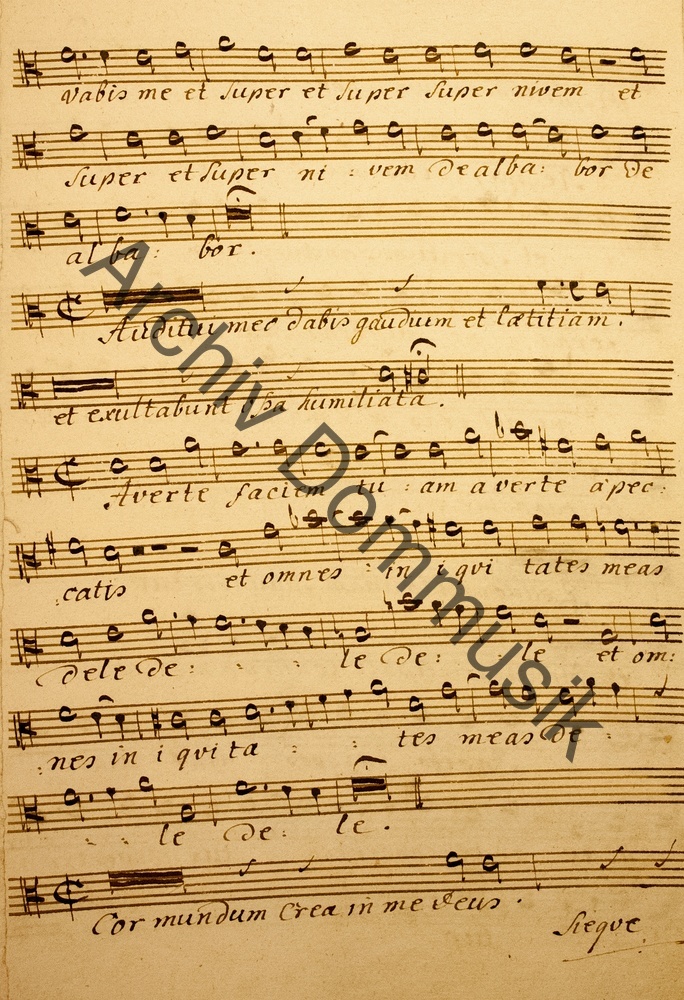 vabis me et super et super super nivem et
super et super ni : vem dealba : bor de
al ba : bor .
Auditui meo dabis gaudium et lætitiam .
et exultabunt ossa humiliata .
Averte faciem tu : am averte a pec :
: catis et omnes in i qui tates meas
dele de : : : le de : : le et om :
: nes in i qui ta : : tes meas de :
: : le de : le .
Cor mundum Crea in me Deus .
Sieque
Archiv Dommusik